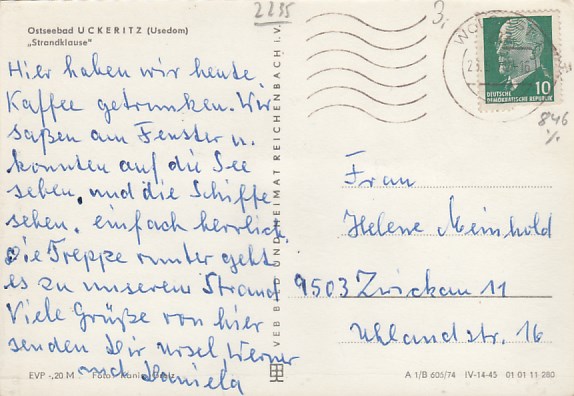 2235
Ostseebad UCKERITZ (Usedom)
„Strandklause"
Hier haben wir heute
Kaffee getrunken. Wir
saßen am Fenster u.
konnten auf die See
sehen, und die Schiffe
sehen. einfach herrlich
Die Treppe runter geht
es zu unserem Strand
Viele Grüße von hier
senden Dir Ursel, Werner
und Daniela
EVP -,20 M Foto:
VEB BILD UND HEIMAT REICHENBACH I. V.
3,
10
DEUTSCHE
DEMOKRATISCHE REPUBLIK
846
Frau
Helene Meinhold
9503 Zwickau 11
Uhlandstr. 16
A 1/B 605/74 IV-14-45 01 01 11 280